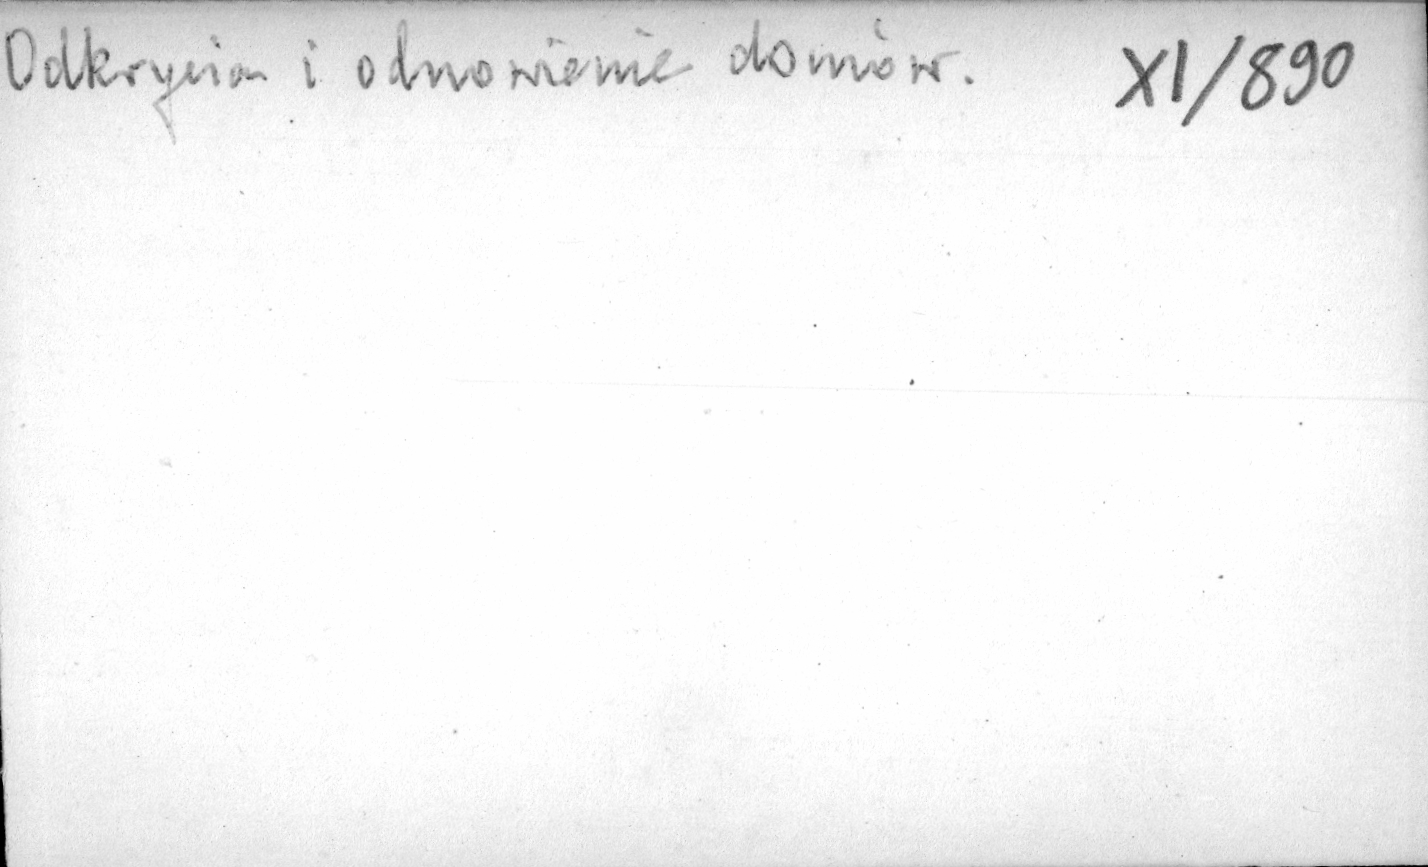 Odkrycia i odnowienie domów. XI/890